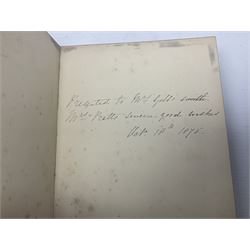 Presented to Mr Gibb Smith
Mrs Pratts sincere good wishes
Octr 14th 1875